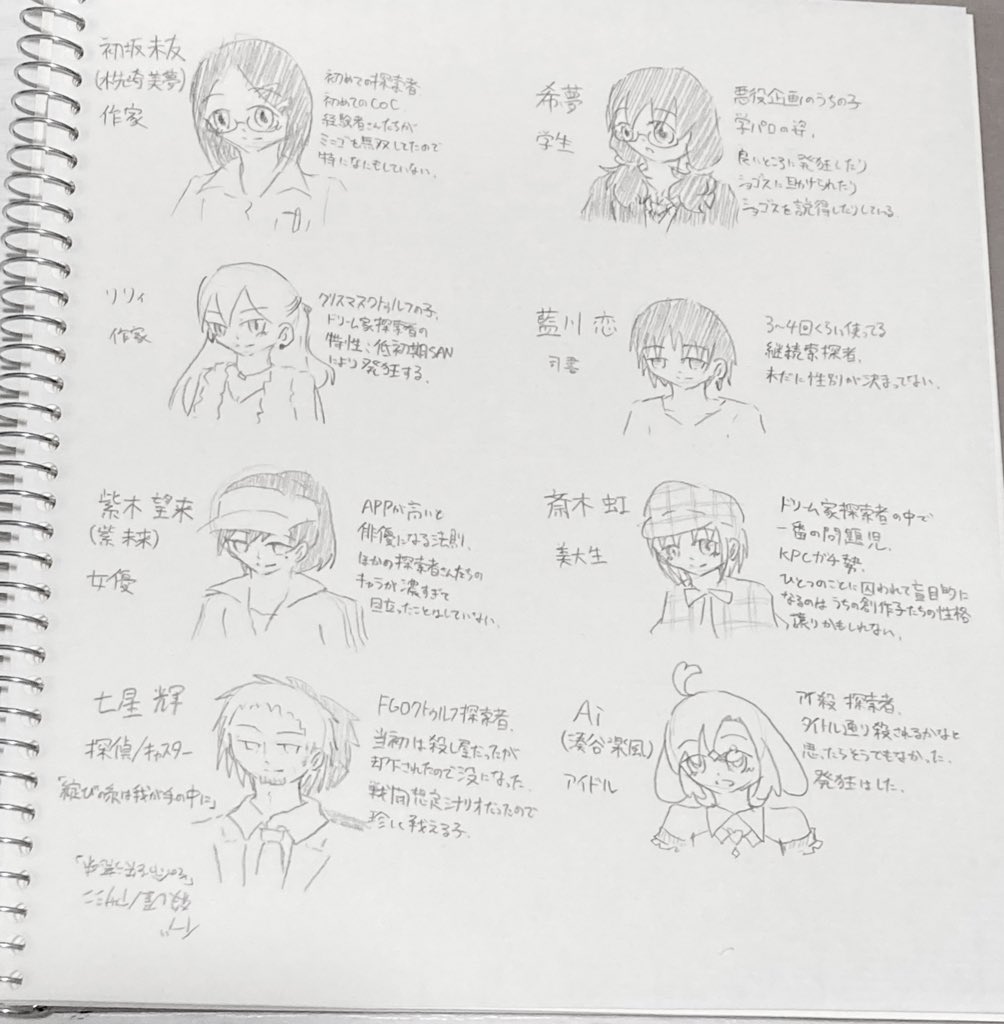 初坂 未友
作家
初めての探索者
初めてのCoC
経験者さんたちが
ミ=ゴを無双してたので
特になにもしていない。
希夢
学生
悪役企画のうちの子
学パロの姿。
良いところに発狂したり
ショゴスに助けられたり
ショゴスを説得したりしている
リリィ
作家
クリスマスクトゥルフの子。
ドリーム家探索者の
特性:低初期SAN
により発狂する。
藍川 恋
司書
3〜4回くらい使ってる
継続探索者。
未だに性別が決まってない。
紫木 望来
(紫 未来)
女優
APPが高いと
俳優になる法則。
ほかの探索者さんたちの
キャラが濃すぎて
目立ったことはしていない。
斎木 虹
美大生
ドリーム家探索者の中で
一番の問題児。
KPCガチ勢。
ひとつのことに囚われて盲目的に
なるのはうちの創作子たちの性格
譲りかもしれない。
七星 輝
探偵/キャスター
「綻びの糸は我が手の中に」
FGOクトゥルフ探索者。
当初は殺し屋だったが
却下されたので没になった。
戦闘想定シナリオだったので
珍しく戦える子。
Ai
(湊谷 楽風)
アイドル
所殺 探索者。
タイトル通り殺されるかなと
思ったらそうでもなかった。
発狂はした。